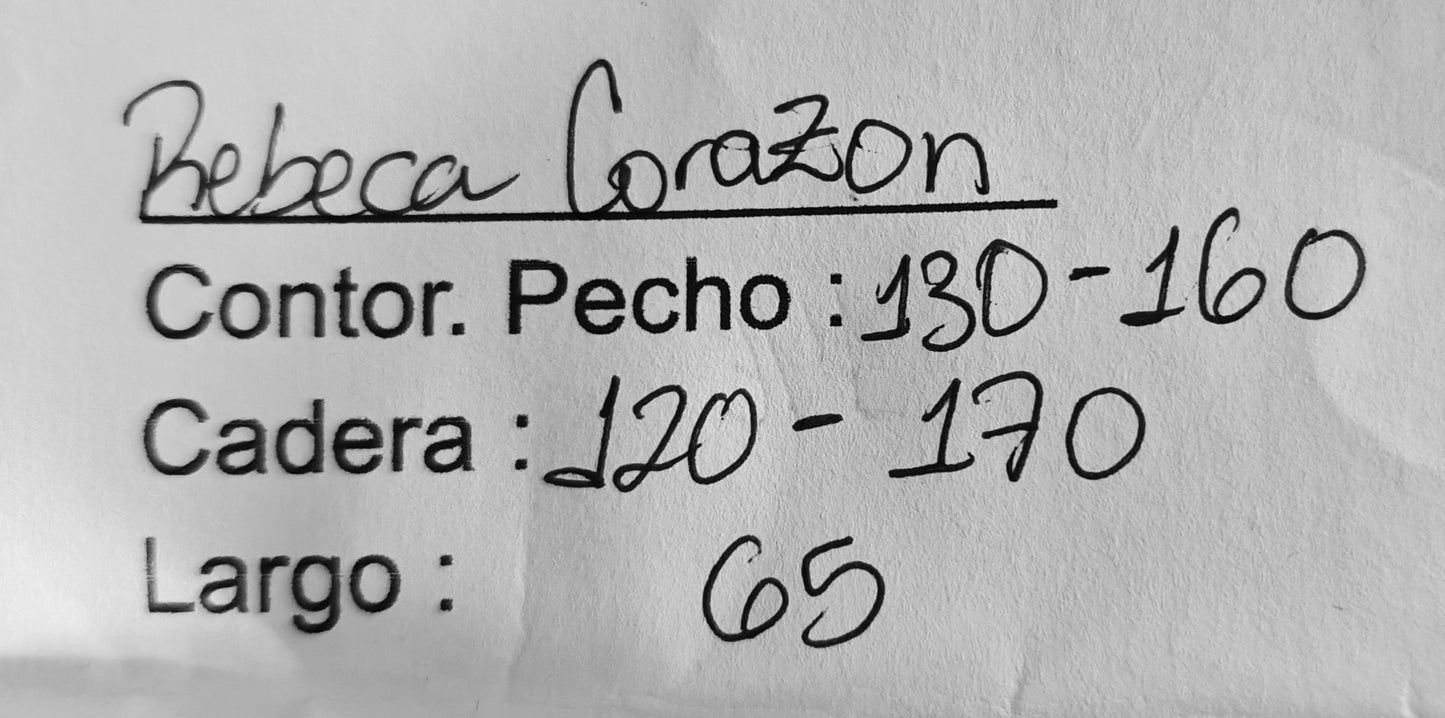 Rebeca Corazon
Contor. Pecho : 130 - 160
Cadera : 120 - 170
Largo : 65